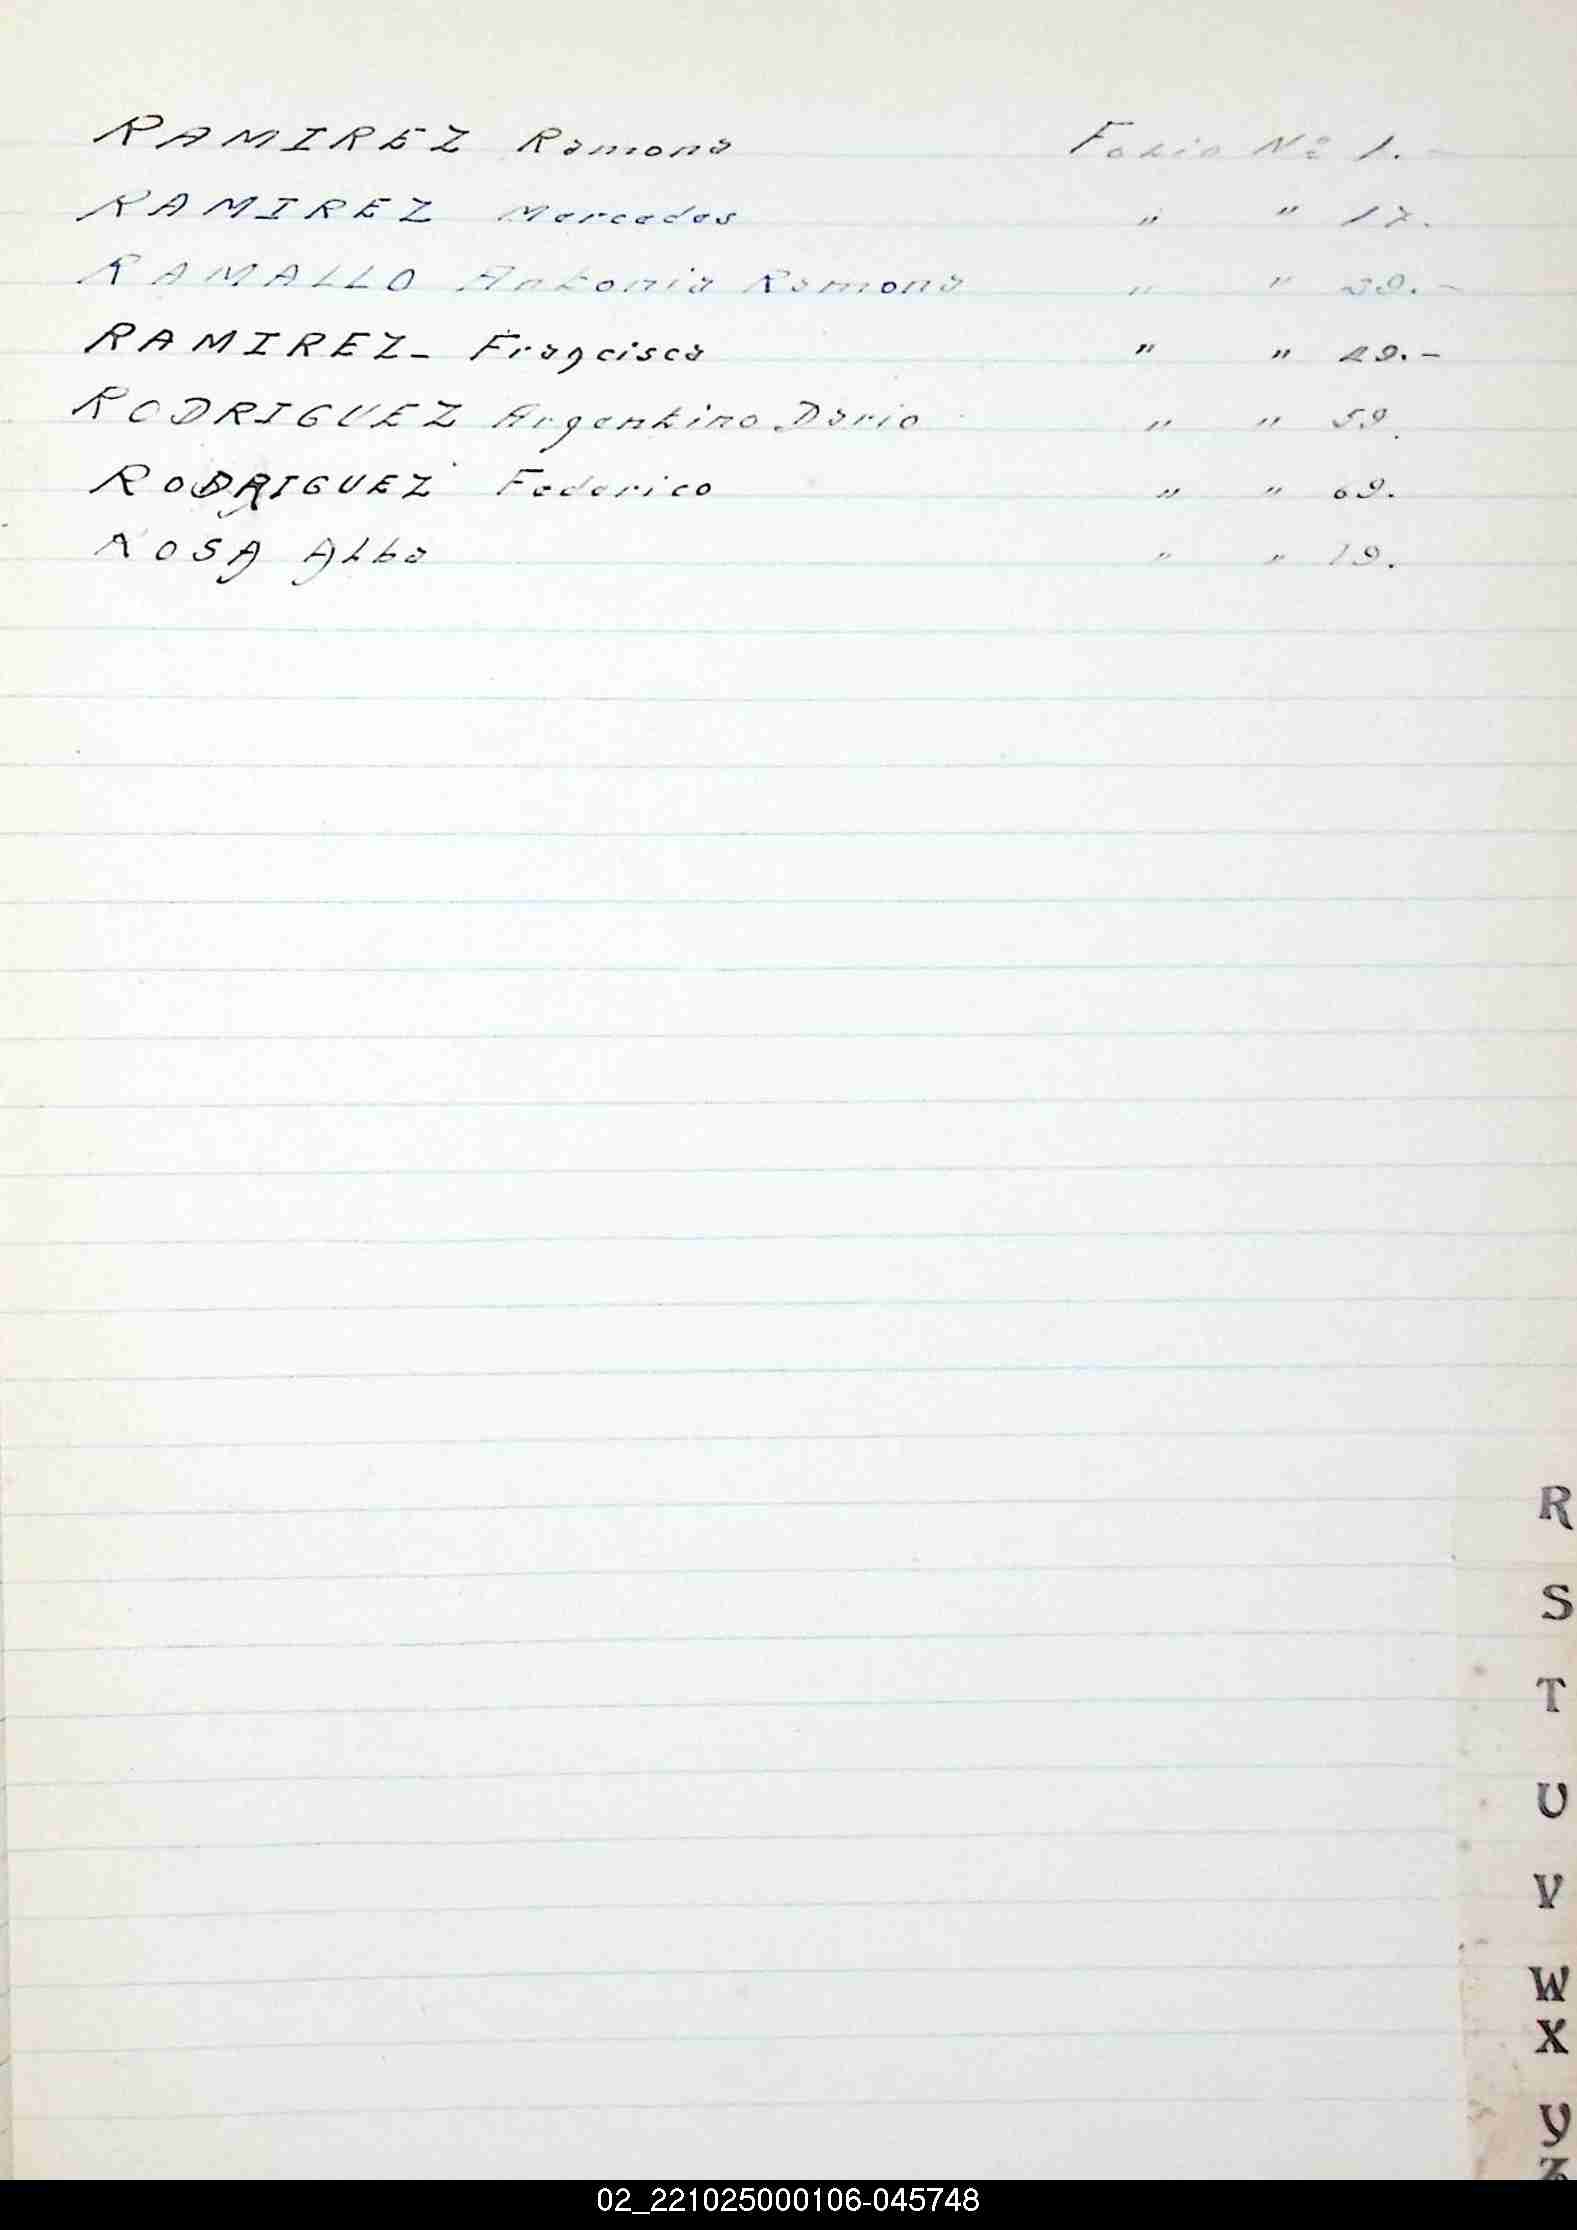 RAMIREZ Ramona Folio Nº 1.-
RAMIREZ Mercedes " " 17.
RAMALLO Antonia Ramona " " 39.-
RAMIREZ- Francisca " " 49.-
RODRIGUEZ Argentino Dario " " 59.
RODRIGUEZ Federico " " 69.
ROSA Alba " " 79.
R
S
T
U
V
W
X
Y
Z
02_221025000106-045748